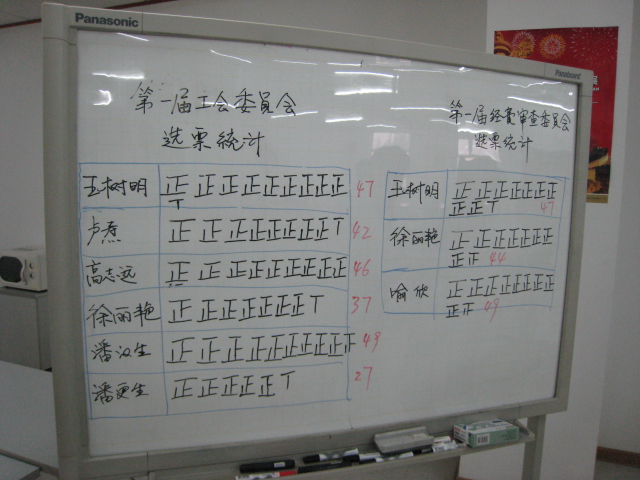 Panasonic
Panaboard
第一届工会委員会
选票统计
王树明 正正正正正正正正正T 47
卢焘 正正正正正正正正T 42
高志远 正正正正正正正正正 46
徐丽艳 正正正正正正正T 37
潘汉生 正正正正正正正正正 49
潘更生 正正正正正T 27
第一届经费审查委员会
选票统计
王树明 正正正正正正正
正正T 47
徐丽艳 正正正正正正正
正正 44
喻欣 正正正正正正正
正正 49